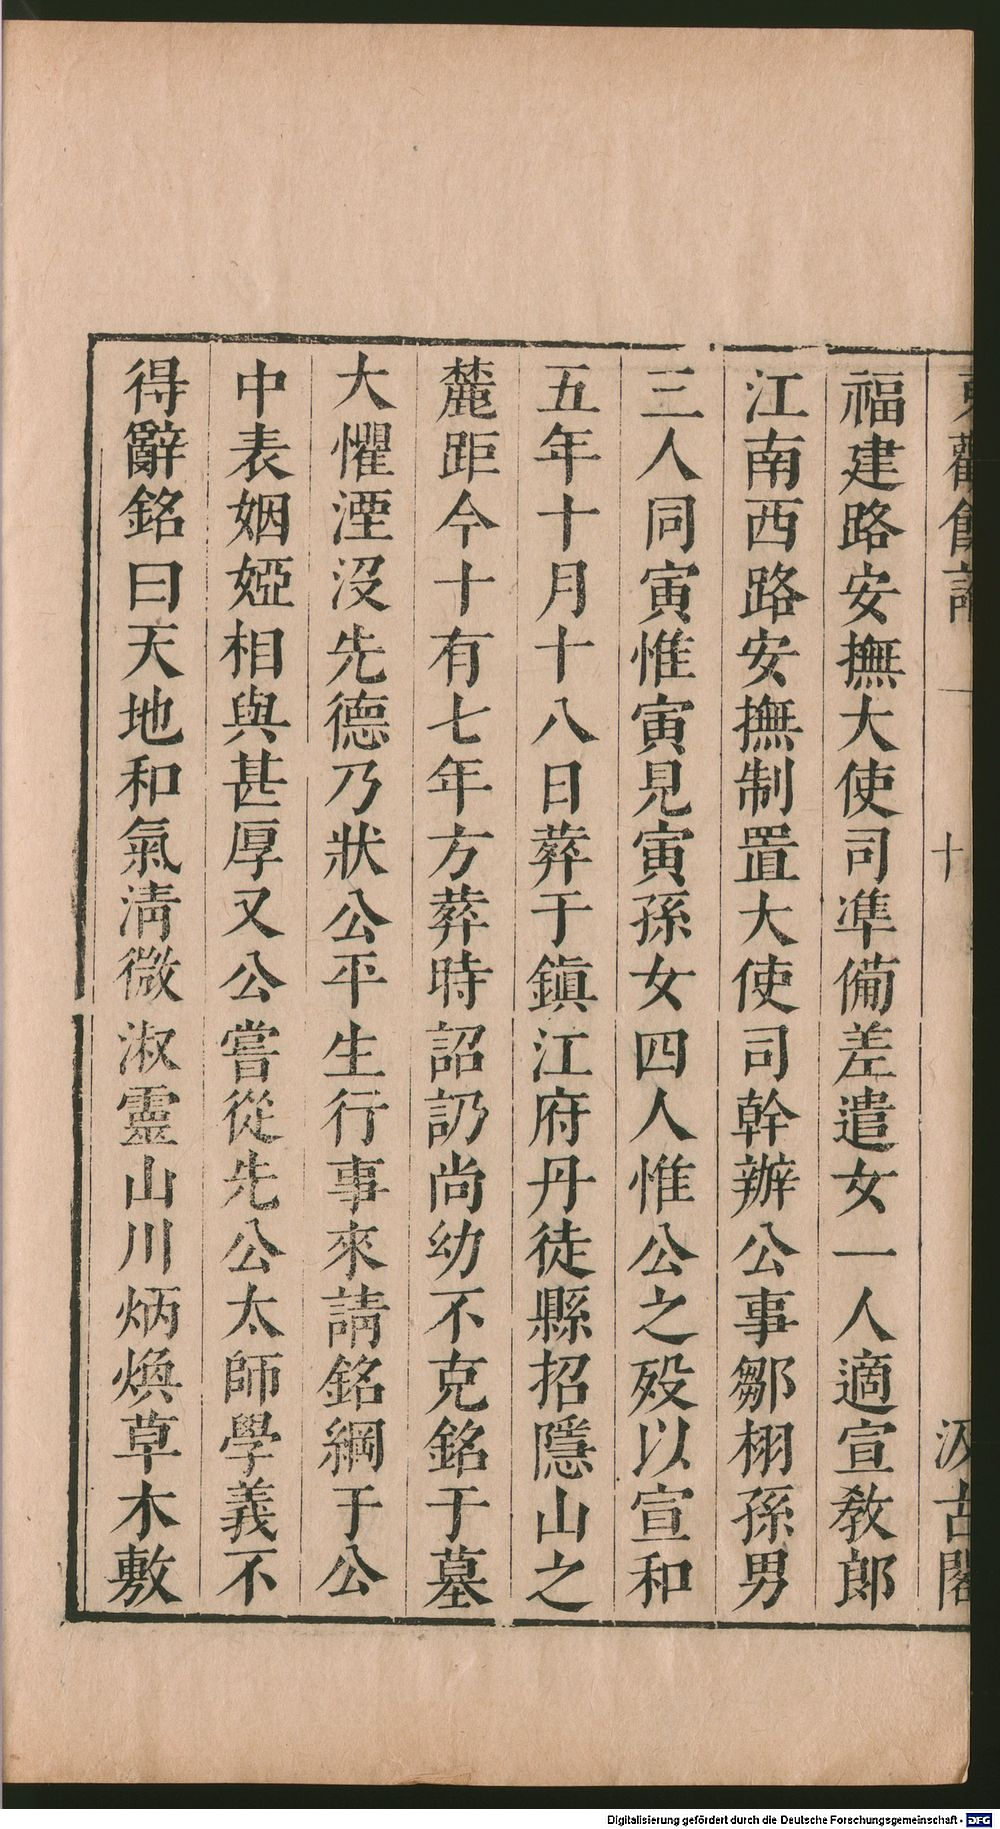 東觀餘論 十 汲古閣
福建路安撫大使司凖備差遣女一人適宣敎郎
江南西路安撫制置大使司幹辦公事鄒栩孫男
三人同寅惟寅見寅孫女四人惟公之歿以宣和
五年十月十八日葬于鎭江府丹徒縣招隱山之
麓距今十有七年方葬時詔訒尚幼不克銘于墓
大懼湮沒先德乃狀公平生行事來請銘綱于公
中表姻婭相與甚厚又公嘗從先公太師學義不
得辭銘曰天地和氣清微淑靈山川炳煥草木敷
Digitalisierung gefördert durch die Deutsche Forschungsgemeinschaft - DFG